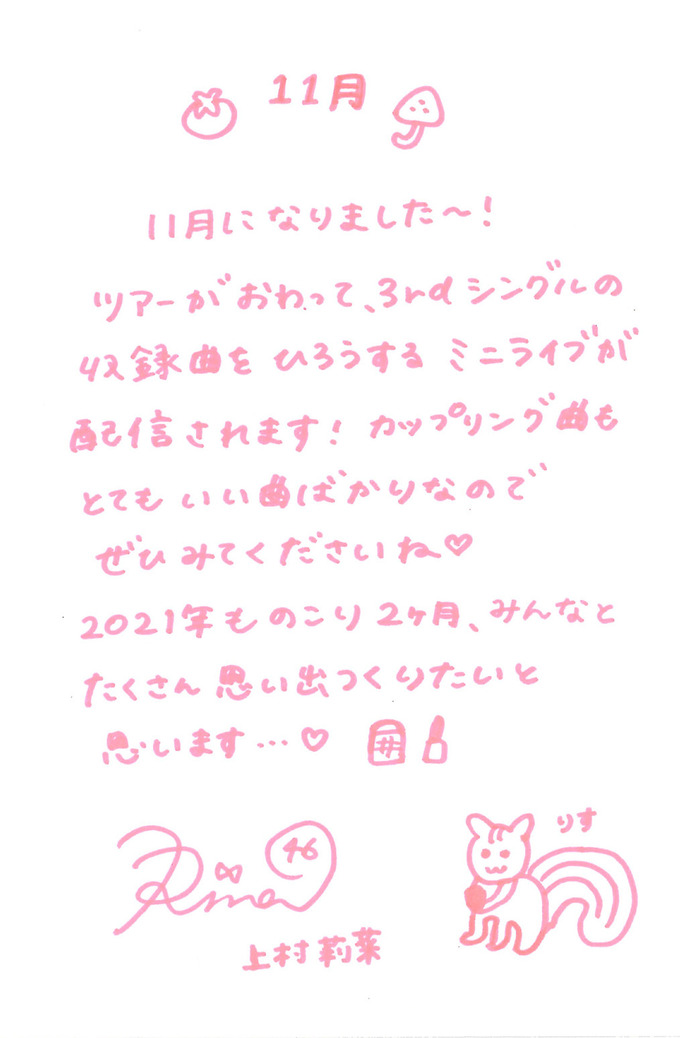 11月
11月になりました〜!
ツアーがおわって、3rdシングルの
収録曲をひろうするミニライブが
配信されます!カップリング曲も
とてもいい曲ばかりなので
ぜひみてくださいね♡
2021年ものこり2ヶ月、みんなと
たくさん思い出つくりたいと
思います…♡
りす
Rina 46
上村莉菜